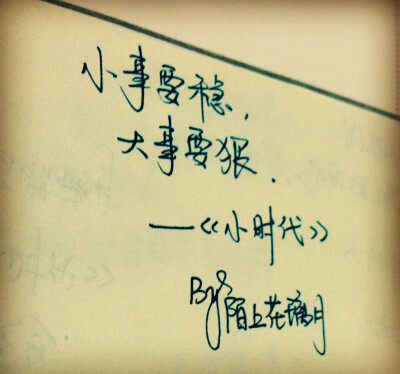 小事要稳，
大事要狠．
—《小时代》
By 陌上花璃月